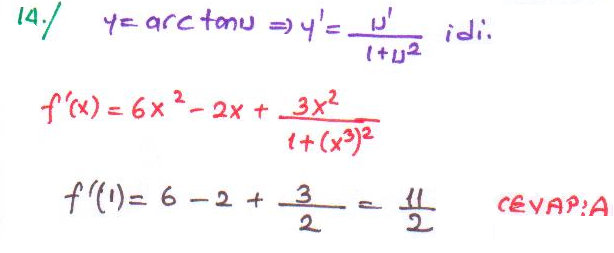 14./ y = arc tanu ⇒ y' = u' / (1+u²) idi.
f'(x) = 6x² - 2x + 3x² / (1+(x³)²)
f'(1) = 6 - 2 + 3/2 = 11/2 CEVAP:A